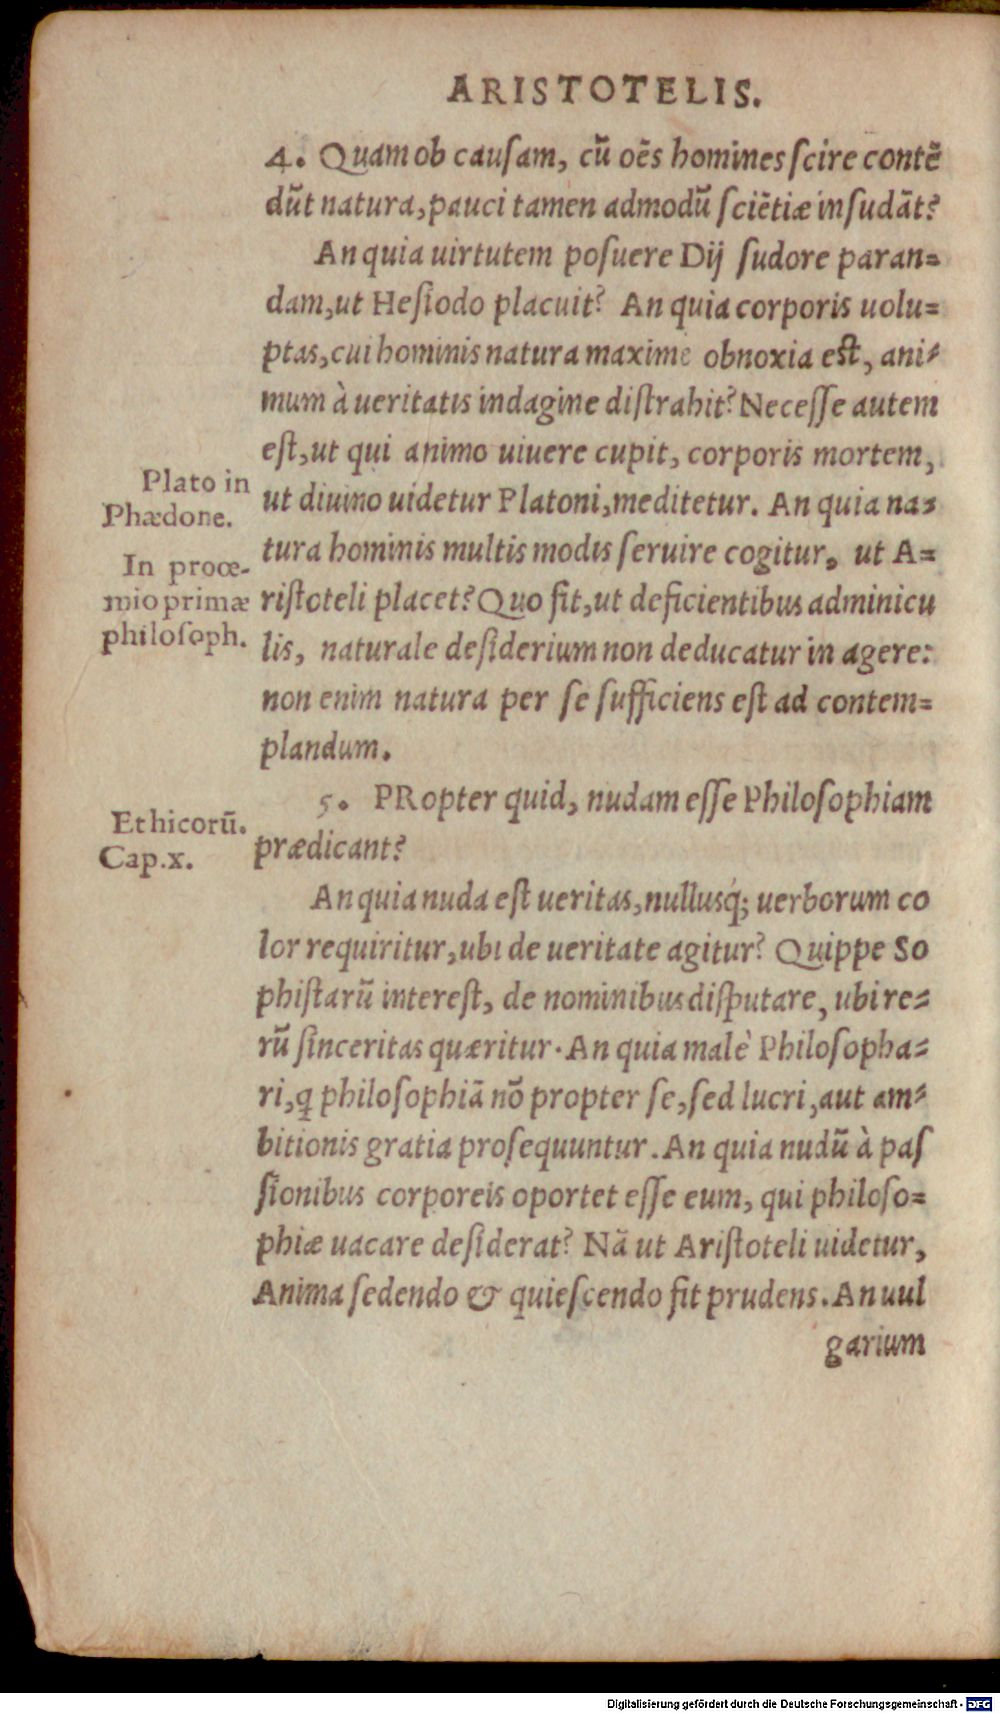 ARISTOTELIS.
4. Quam ob causam, cū oēs homines scire contē
dūt natura, pauci tamen admodū sciētiæ insudāt?
An quia uirtutem posuere Dij sudore paran=
dam, ut Hesiodo placuit? An quia corporis uolu=
ptas, cui hominis natura maxime obnoxia est, ani=
mum à ueritatis indagine distrahit? Necesse autem
est, ut qui animo uiuere cupit, corporis mortem,
Plato in
Phædone.
ut diuino uidetur Platoni, meditetur. An quia na=
tura hominis multis modis seruire cogitur, ut A=
In procœ-
mio primæ
philosoph.
ristoteli placet? Quo fit, ut deficientibus adminicu
lis, naturale desiderium non deducatur in agere:
non enim natura per se sufficiens est ad contem=
plandum.
5. PRopter quid, nudam esse Philosophiam
Ethicorū.
Cap. x.
prædicant?
An quia nuda est ueritas, nullusq́; uerborum co
lor requiritur, ubi de ueritate agitur? Quippe So
phistarū interest, de nominibus disputare, ubi re=
rū sinceritas quæritur. An quia malè Philosopha=
ri, q philosophiā nō propter se, sed lucri, aut am=
bitionis gratia prosequuntur. An quia nudū à pas
sionibus corporeis oportet esse eum, qui philoso=
phiæ uacare desiderat? Nā ut Aristoteli uidetur,
Anima sedendo & quiescendo fit prudens. An uul
garium
Digitalisierung gefördert durch die Deutsche Forschungsgemeinschaft - DFG